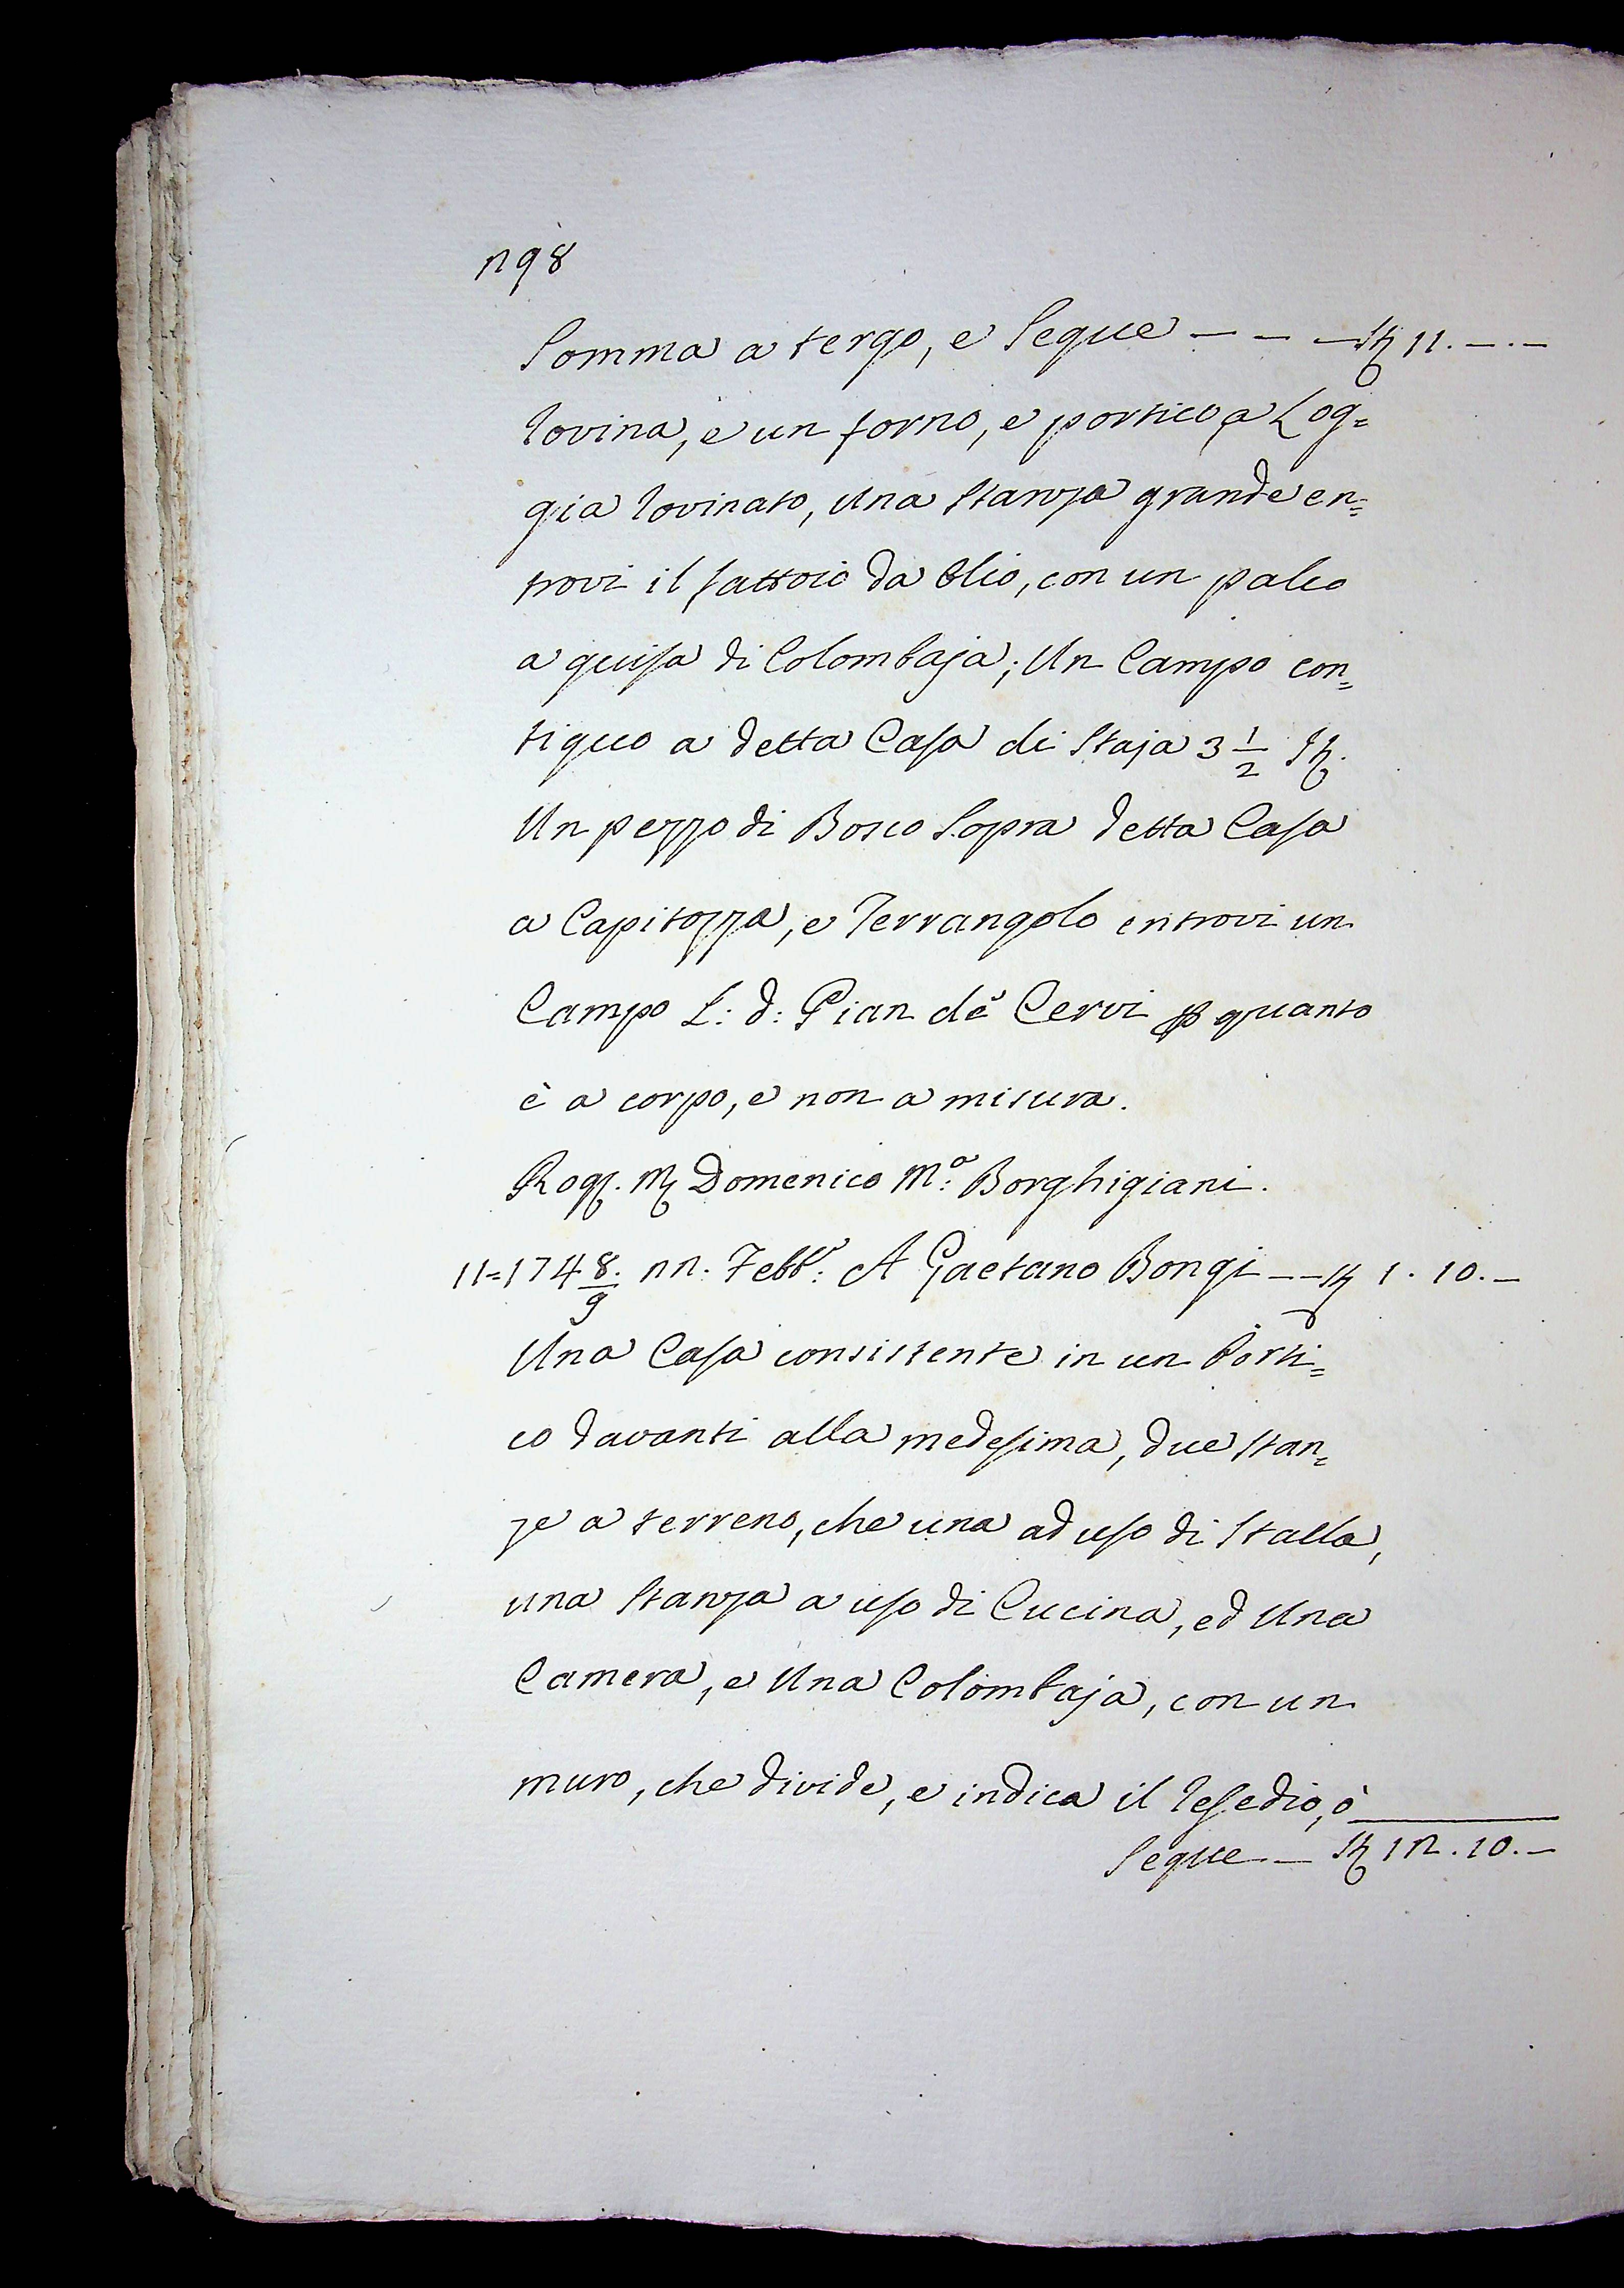 298
Somma a tergo, e Segue - - - St. 11. - . -
rovina, e un forno, e portico, a Log=
gia rovinato, Una Stanza grande en=
trovi il fattoio da Olio, con un palco
a guisa di Colombaja; Un Campo con=
tiguo a detta Casa di Staja 3 1/2 St.
Un pezzo di Bosco Sopra detta Casa
a Capitozza, e Terrangolo entrovi un
Campo L: d: Pian de' Cervi p quanto
è a corpo, e non a misura.
Rog. M Domenico M.a Borghigiani.
11=1748/9. 22. Febb.r: A Gaetano Bongi -- St. 1. 10. -
Una Casa consistente in un Porti=
co davanti alla medesima, due Stan=
ze a terreno, che una ad uso di Stalla,
una Stanza a uso di Cucina, ed Una
Camera, e Una Colombaja, con un
muro, che divide, e indica il resedio, ò
Segue - St. 12. 10. -